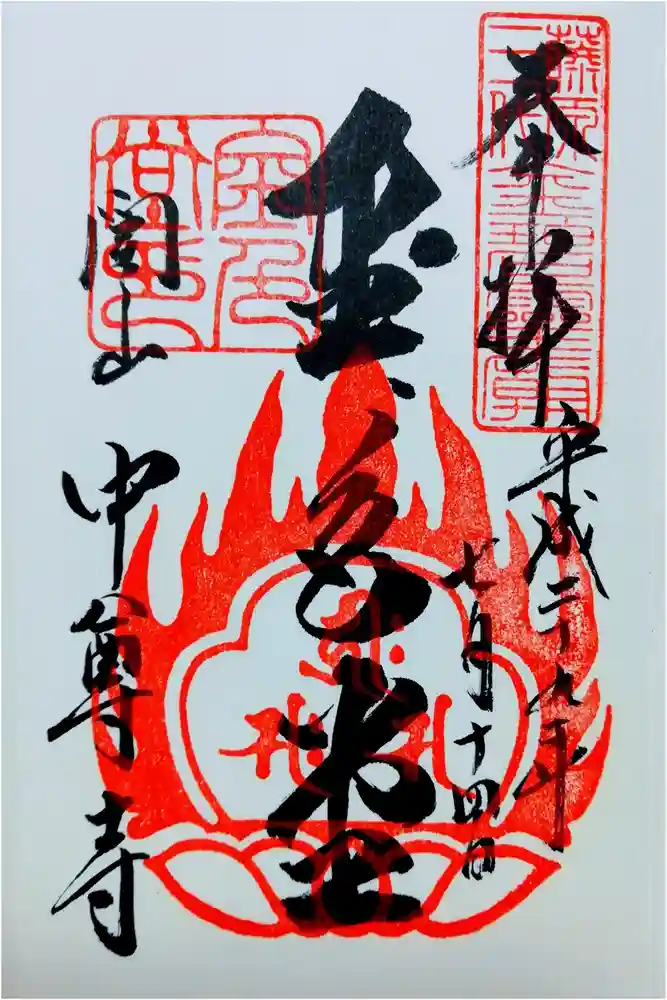 奉拝
平成二十九年
七月十四日
金色堂
関山
中尊寺
金色
堂印